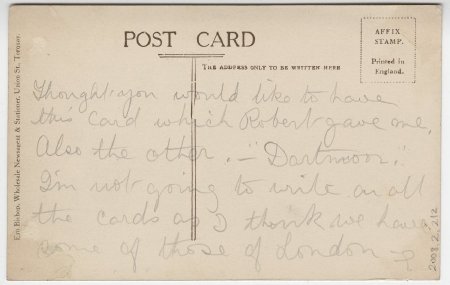 POST CARD
THE ADDRESS ONLY TO BE WRITTEN HERE
AFFIX
STAMP.
Printed in
England.
Thought you would like to have
this card which Robert gave me.
Also the other. – "Dartmoor."
I'm not going to write on all
the cards as I think we have
some of those of London –
2008.2.212
Ern Bishop, Wholesale Newsagent & Stationer, Union St., Torquay.